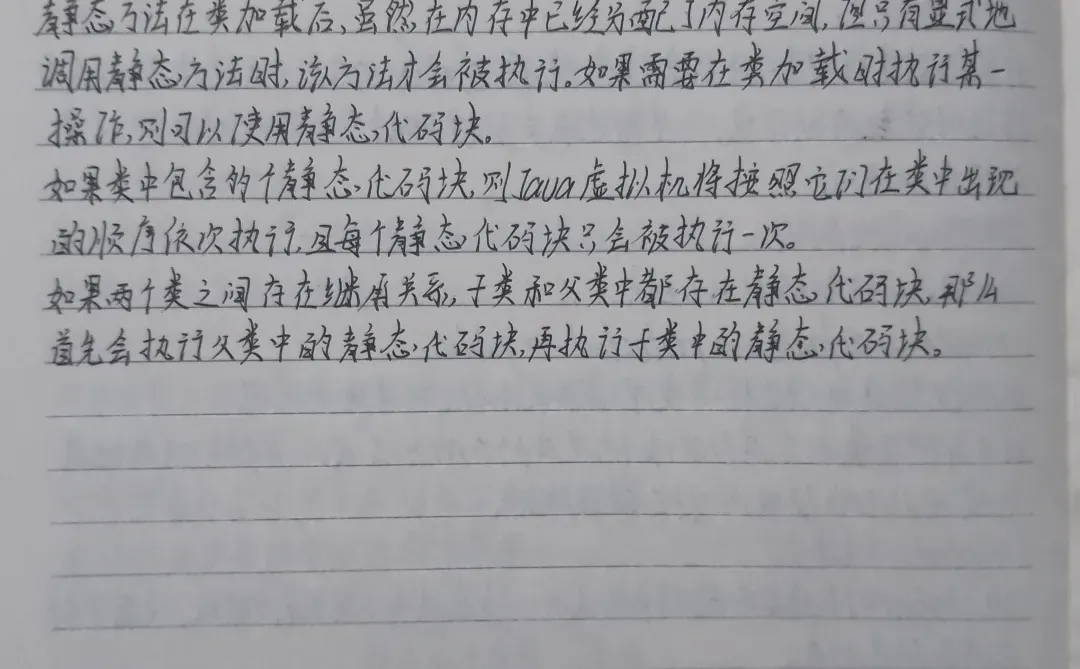 静态方法在类加载后,虽然在内存中已经分配了内存空间,但只有显式地
调用静态方法时,该方法才会被执行。如果需要在类加载时执行某一
操作,则可以使用静态代码块。
如果类中包含多个静态代码块,则Java虚拟机将按照它们在类中出现
的顺序依次执行,且每个静态代码块只会被执行一次。
如果两个类之间存在继承关系,子类和父类中都存在静态代码块,那么
首先会执行父类中的静态代码块,再执行子类中的静态代码块。